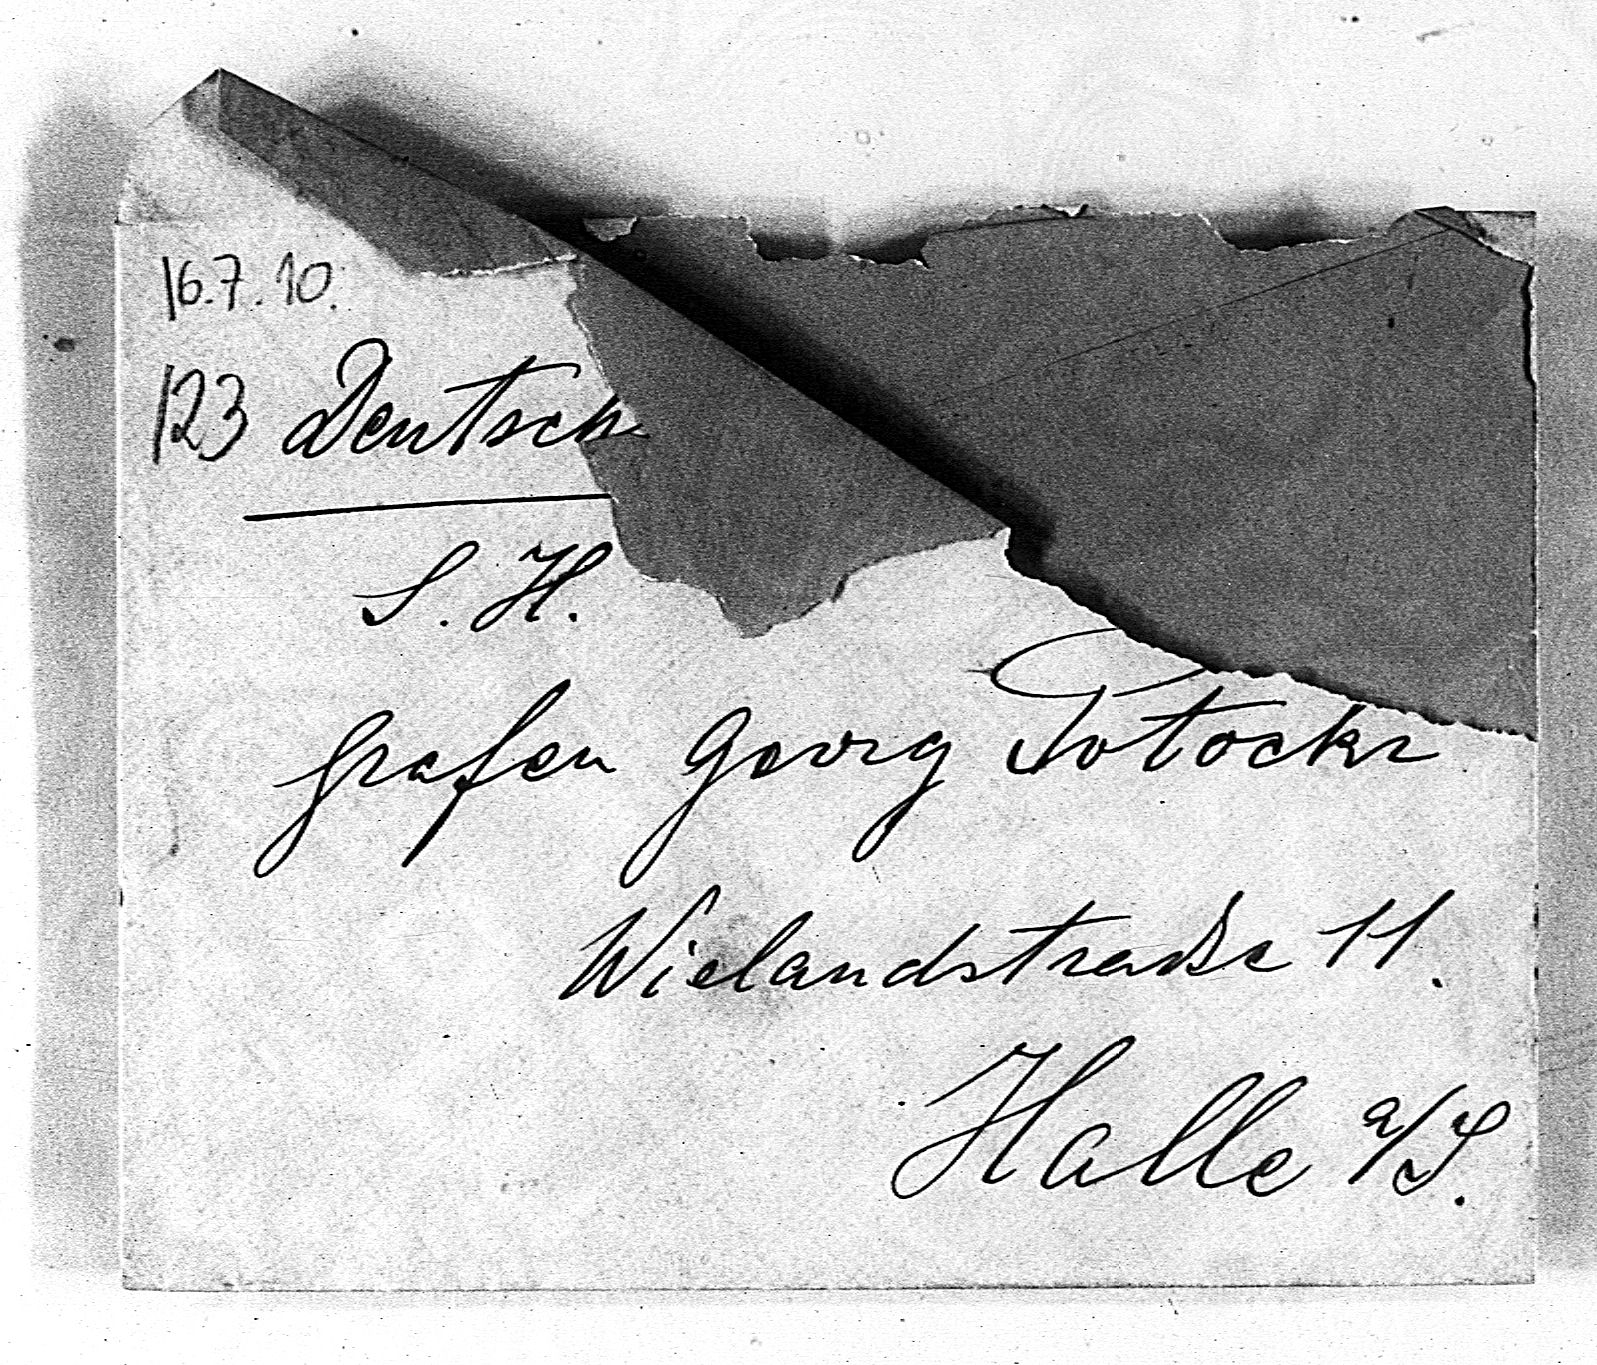 16.7.10.
123 Deutsch
S. H.
Grafen Georg Potocki
Wielandstraße 11.
Halle a/S.